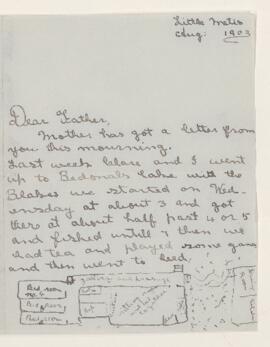 Little Metis
Aug: 1903
Dear Father,
Mother has got a letter from
you this mourning.
Last week Clare and I went
up to Bedonals lake with the
Blakes we started on Wed-
ensday at about 3 and got
there at about half part 4 or 5
and fished untill 7 then we
had tea and played some games
and then went to bed.
Bed room
Bed room
Bed room